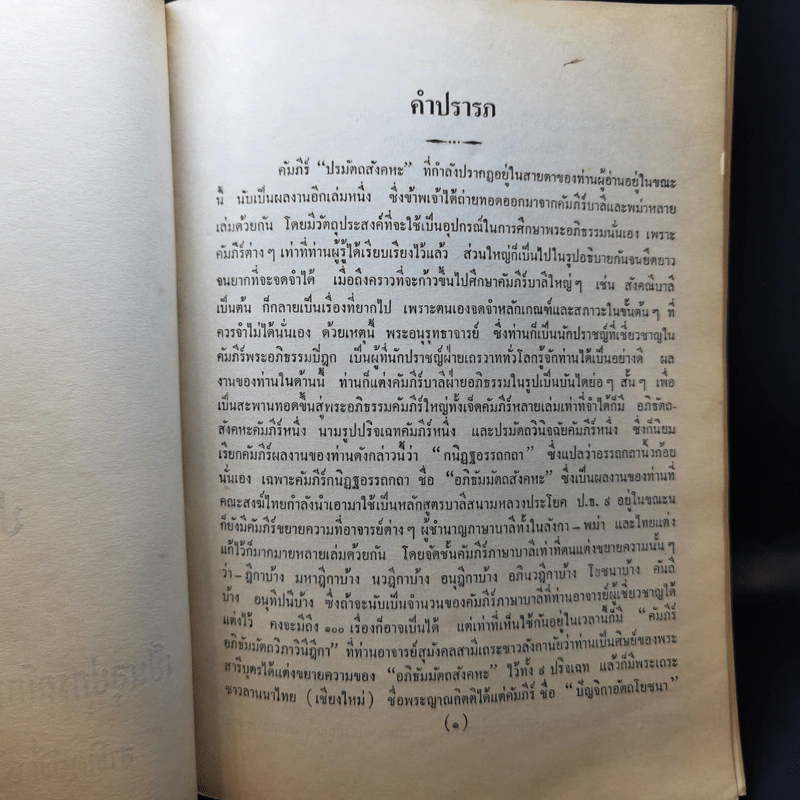 คำปรารภ
คัมภีร์ “ปรมัตถสังคหะ” ที่กำลังปรากฏอยู่ในสายตาของท่านผู้อ่านอยู่ในขณะ
นี้ นับเป็นผลงานอีกเล่มหนึ่ง ซึ่งข้าพเจ้าได้ถ่ายทอดออกมาจากคัมภีร์บาลีและพม่าหลาย
เล่มด้วยกัน โดยมีวัตถุประสงค์ที่จะใช้เป็นอุปกรณ์ในการศึกษาพระอภิธรรมนั่นเอง เพราะ
คัมภีร์ต่างๆ เท่าที่ท่านผู้รู้ได้เรียบเรียงไว้แล้ว ส่วนใหญ่ก็เป็นไปในรูปอธิบายกันจนยืดยาว
จนยากที่จะจดจำได้ เมื่อถึงคราวที่จะก้าวขึ้นไปศึกษาคัมภีร์บาลีใหญ่ๆ เช่น สังคณีบาลี
เป็นต้น ก็กลายเป็นเรื่องที่ยากไป เพราะตนเองจดจำหลักเกณฑ์และสภาวะในขั้นต้นๆ ที่
ควรจำไม่ได้นั่นเอง ด้วยเหตุนี้ พระอนุรุทธาจารย์ ซึ่งท่านก็เป็นนักปราชญ์ที่เชี่ยวชาญใน
คัมภีร์พระอภิธรรมปิฎก เป็นผู้ที่นักปราชญ์ฝ่ายเถรวาททั่วโลกรู้จักท่านได้เป็นอย่างดี ผล
งานของท่านในด้านนี้ ท่านก็แต่งคัมภีร์บาลีฝ่ายอภิธรรมในรูปเป็นบันไดย่อๆ สั้นๆ เพื่อ
เป็นสะพานทอดขึ้นสู่พระอภิธรรมคัมภีร์ใหญ่ทั้งเจ็ดคัมภีร์หลายเล่มเท่าที่จำได้ก็มี อภิธัตถ-
สังคหะคัมภีร์หนึ่ง นามรูปปริจเฉทคัมภีร์หนึ่ง และปรมัตถวินิจฉัยคัมภีร์หนึ่ง ซึ่งก็นิยม
เรียกคัมภีร์ผลงานของท่านดังกล่าวนี้ว่า “กนิฏฐอรรถกถา” ซึ่งแปลว่าอรรถกถานิ้วก้อย
นั่นเอง เฉพาะคัมภีร์กนิฏฐอรรถกถา ชื่อ “อภิธัมมัตถสังคหะ” ซึ่งเป็นผลงานของท่านที่
คณะสงฆ์ไทยกำลังนำเอามาใช้เป็นหลักสูตรบาลีสนามหลวงประโยค ป.ธ. ๙ อยู่ในขณะน
ก็ยังมีคัมภีร์ขยายความที่อาจารย์ต่างๆ ผู้ชำนาญภาษาบาลีทั้งในลังกา-พม่า และไทยแต่ง
แก้ไว้ก็มากมายหลายเล่มด้วยกัน โดยจัดชั้นคัมภีร์ภาษาบาลีเท่าที่ตนแต่งขยายความนั้นๆ
ว่า-ฎีกาบ้าง มหาฎีกาบ้าง นวฎีกาบ้าง อนุฎีกาบ้าง อภินวฎีกาบ้าง โยชนาบ้าง คันถี
บ้าง อนุทีปนีบ้าง ซึ่งถ้าจะนับเป็นจำนวนของคัมภีร์ภาษาบาลีที่ท่านอาจารย์ผู้เชี่ยวชาญได้
แต่งไว้ คงจะมีถึง ๑๐๐ เรื่องก็อาจเป็นได้ แต่เท่าที่เห็นใช้กันอยู่ในเวลานี้ก็มี “คัมภีร์
อภิธัมมัตถวิภาวินีฎีกา” ที่ท่านอาจารย์สุมังคลสามีเถระชาวลังกานัยว่าท่านเป็นศิษย์ของพระ
สารีบุตรได้แต่งขยายความของ “อภิธัมมัตถสังคหะ” ไว้ทั้ง ๙ ปริจเฉท แล้วก็มีพระเถระ
ชาวลานนาไทย (เชียงใหม่) ชื่อพระญาณกิตติได้แต่คัมภีร์ ชื่อ “ปัญจิกาอัตถโยชนา”
(๑)